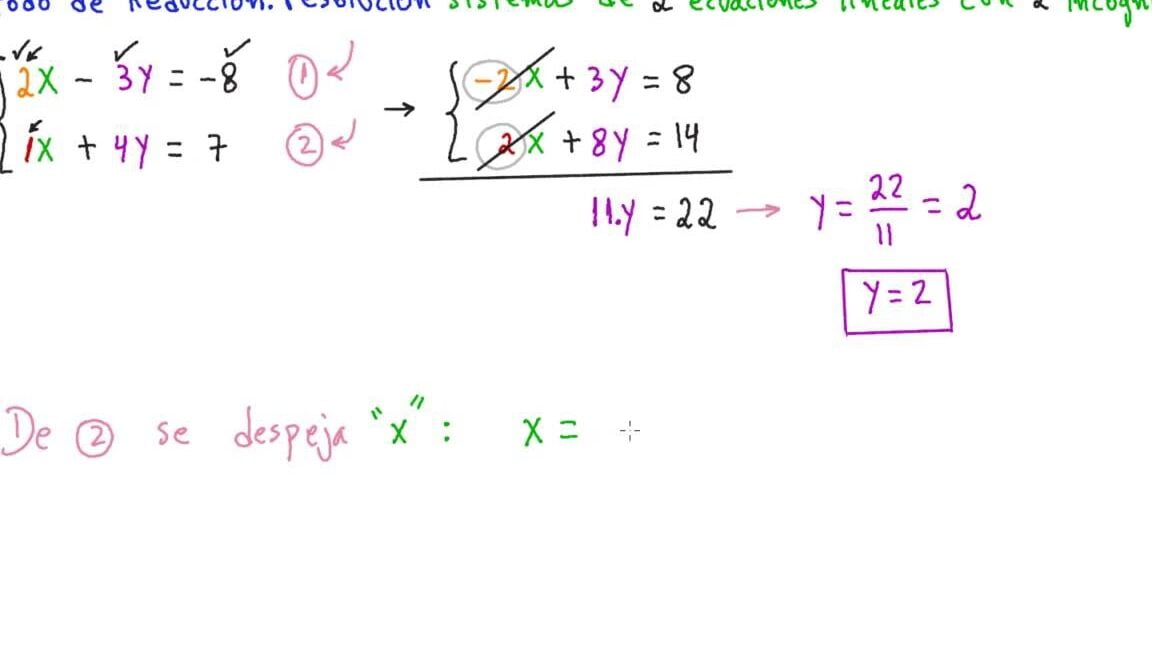 de Reducción: resolución sistemas de 2 ecuaciones lineales con 2
2x - 3y = -8 ①
1x + 4y = 7 ②
→
-2x + 3y = 8
2x + 8y = 14
11.y = 22 → y = 22/11 = 2
y = 2
De ② se despeja "x": x =